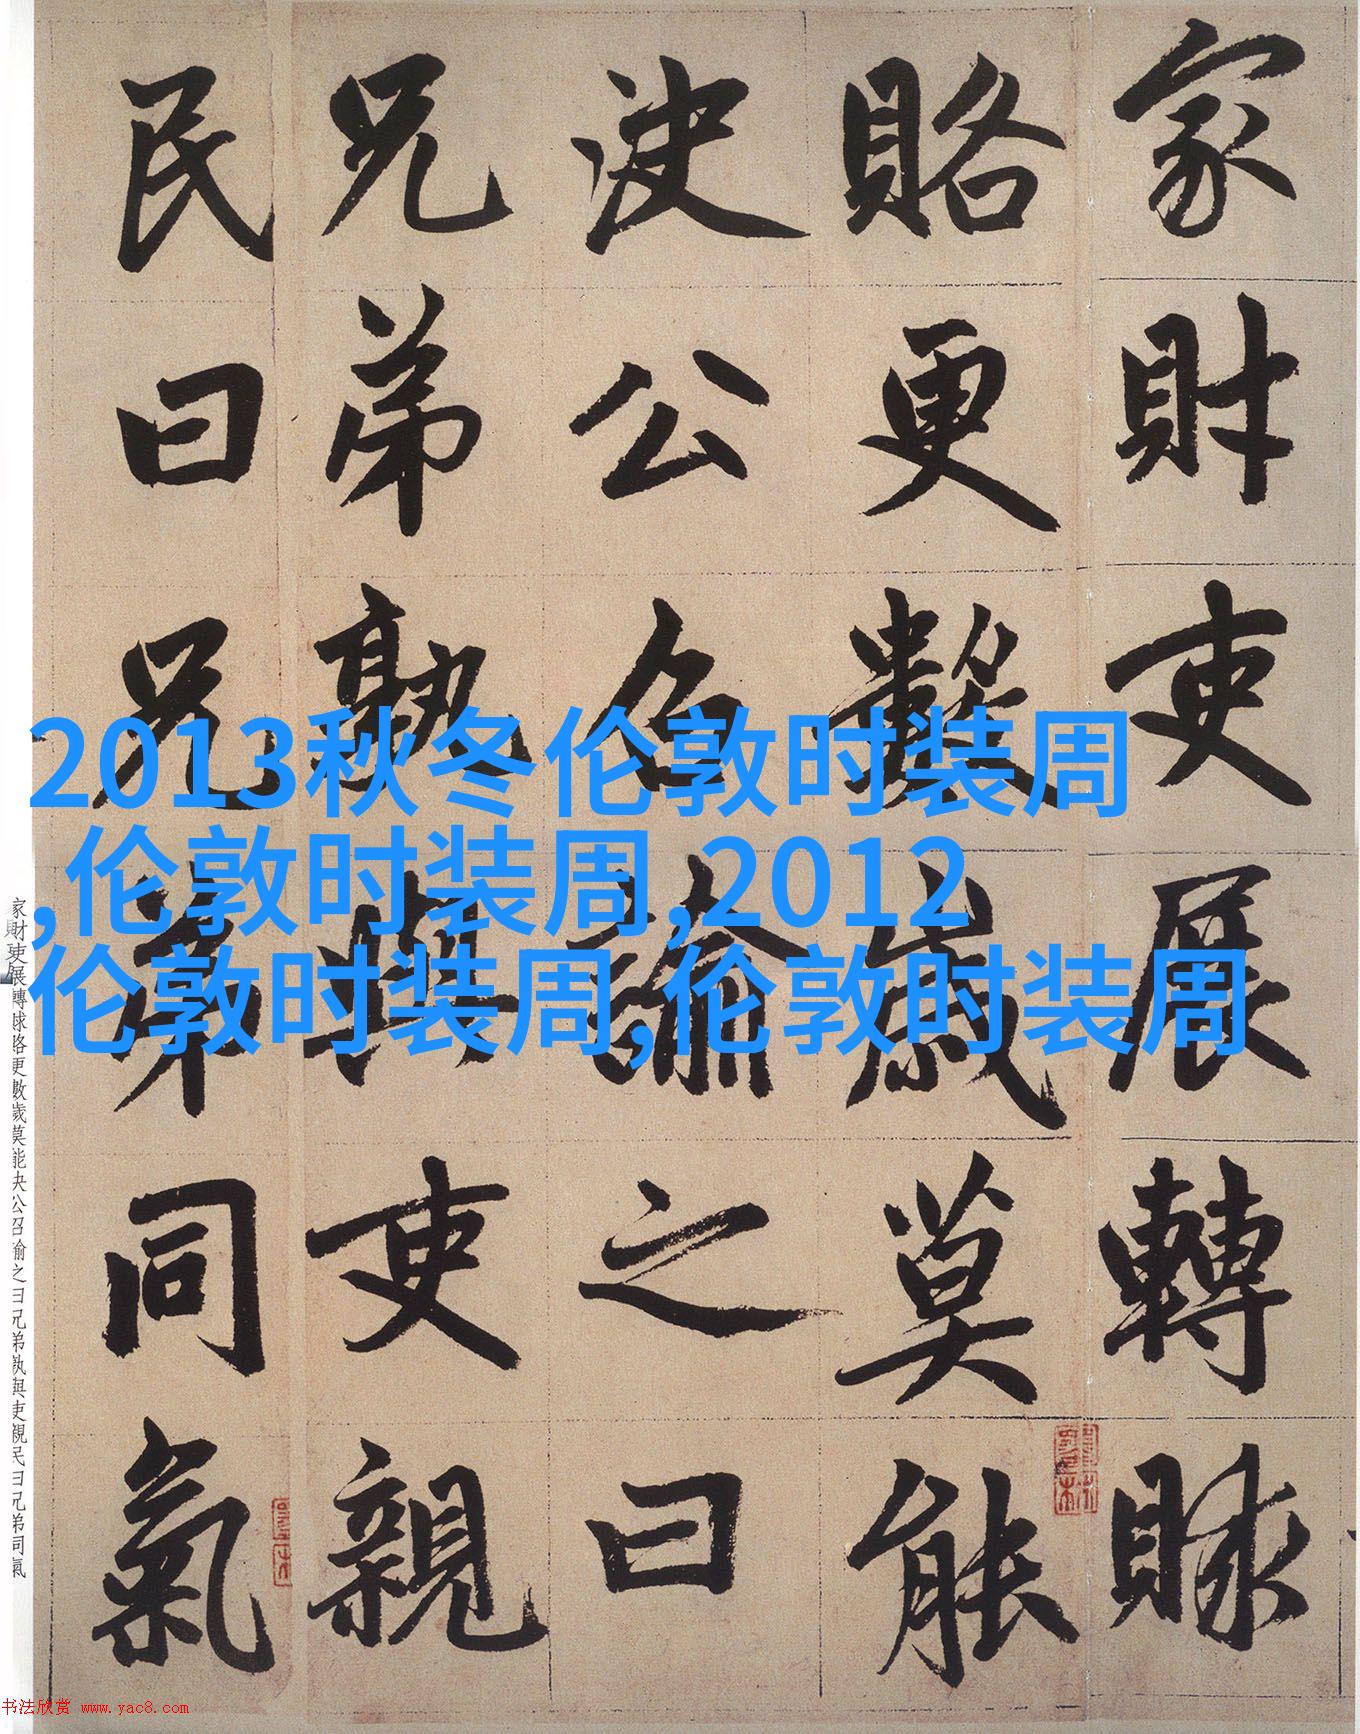 家財吏展轉賕
賂更數歲莫能
決公召諭之曰
兄弟孰與吏親
民曰兄弟同氣
2013秋冬伦敦时装周
,伦敦时装周,2012
伦敦时装周,伦敦时装周
家財吏展轉賕賂更數歲莫能決公召諭之曰兄弟孰與吏親民曰兄弟同氣
书法欣赏 www.yac8.com